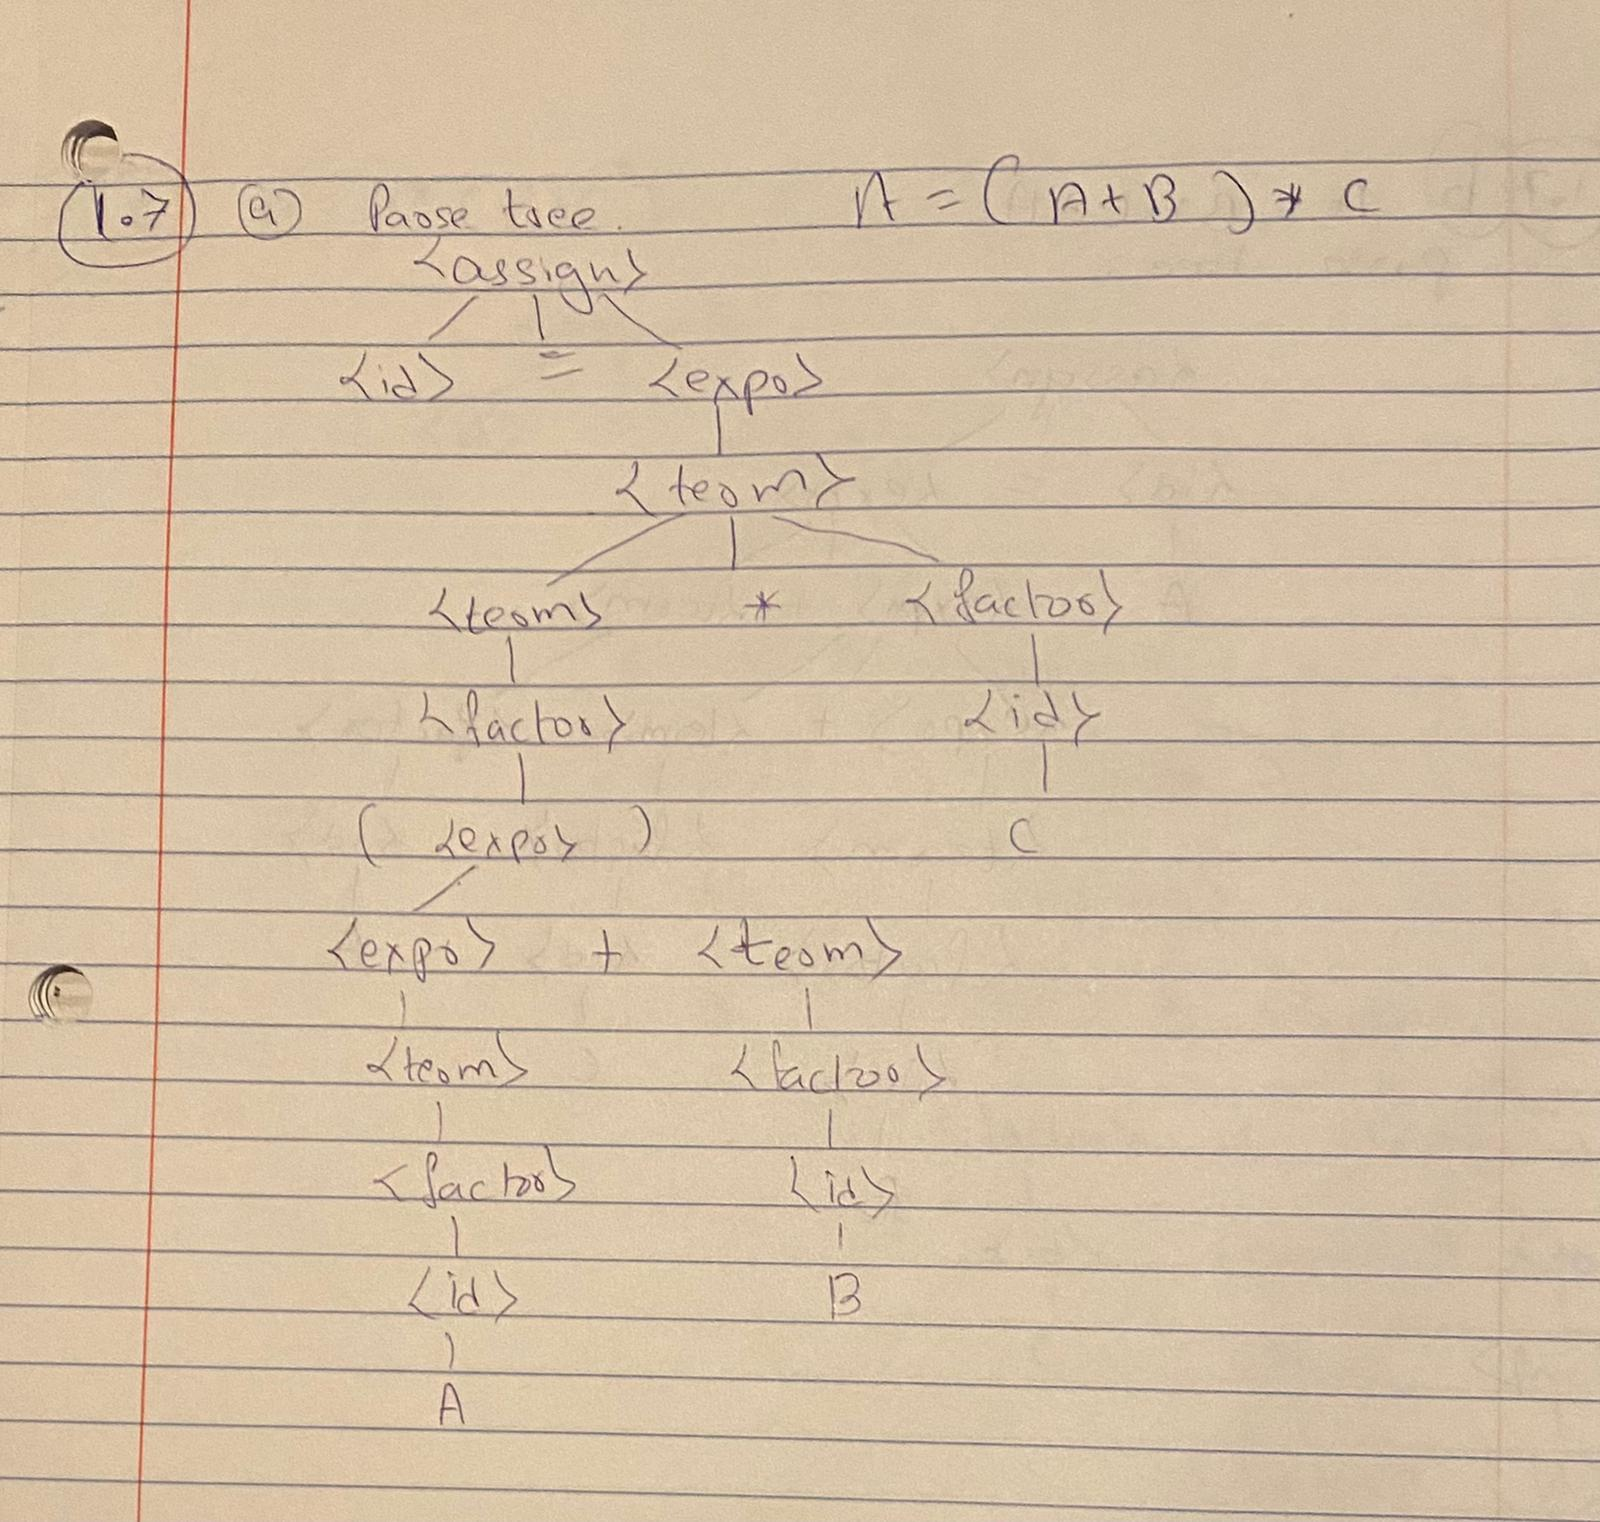 1.7 (a) Parse tree. A = ( A + B ) * C
<assign>
<id> = <expr>
<term>
<term> * <factor>
<factor> <id>
( <expr> ) C
<expr> + <term>
<term> <factor>
<factor> <id>
<id> B
A